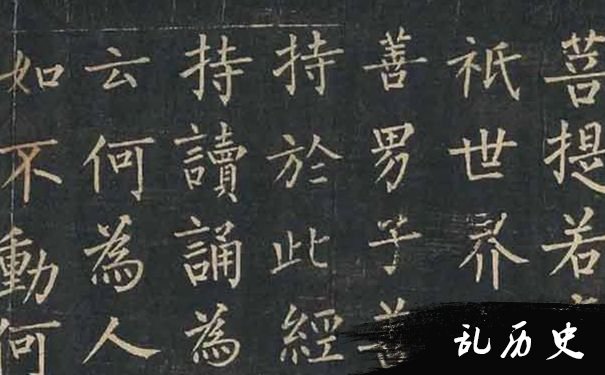 菩提若
祇世界
善男子善
持於此經
持讀誦為
云何為人
如不動何
乱历史